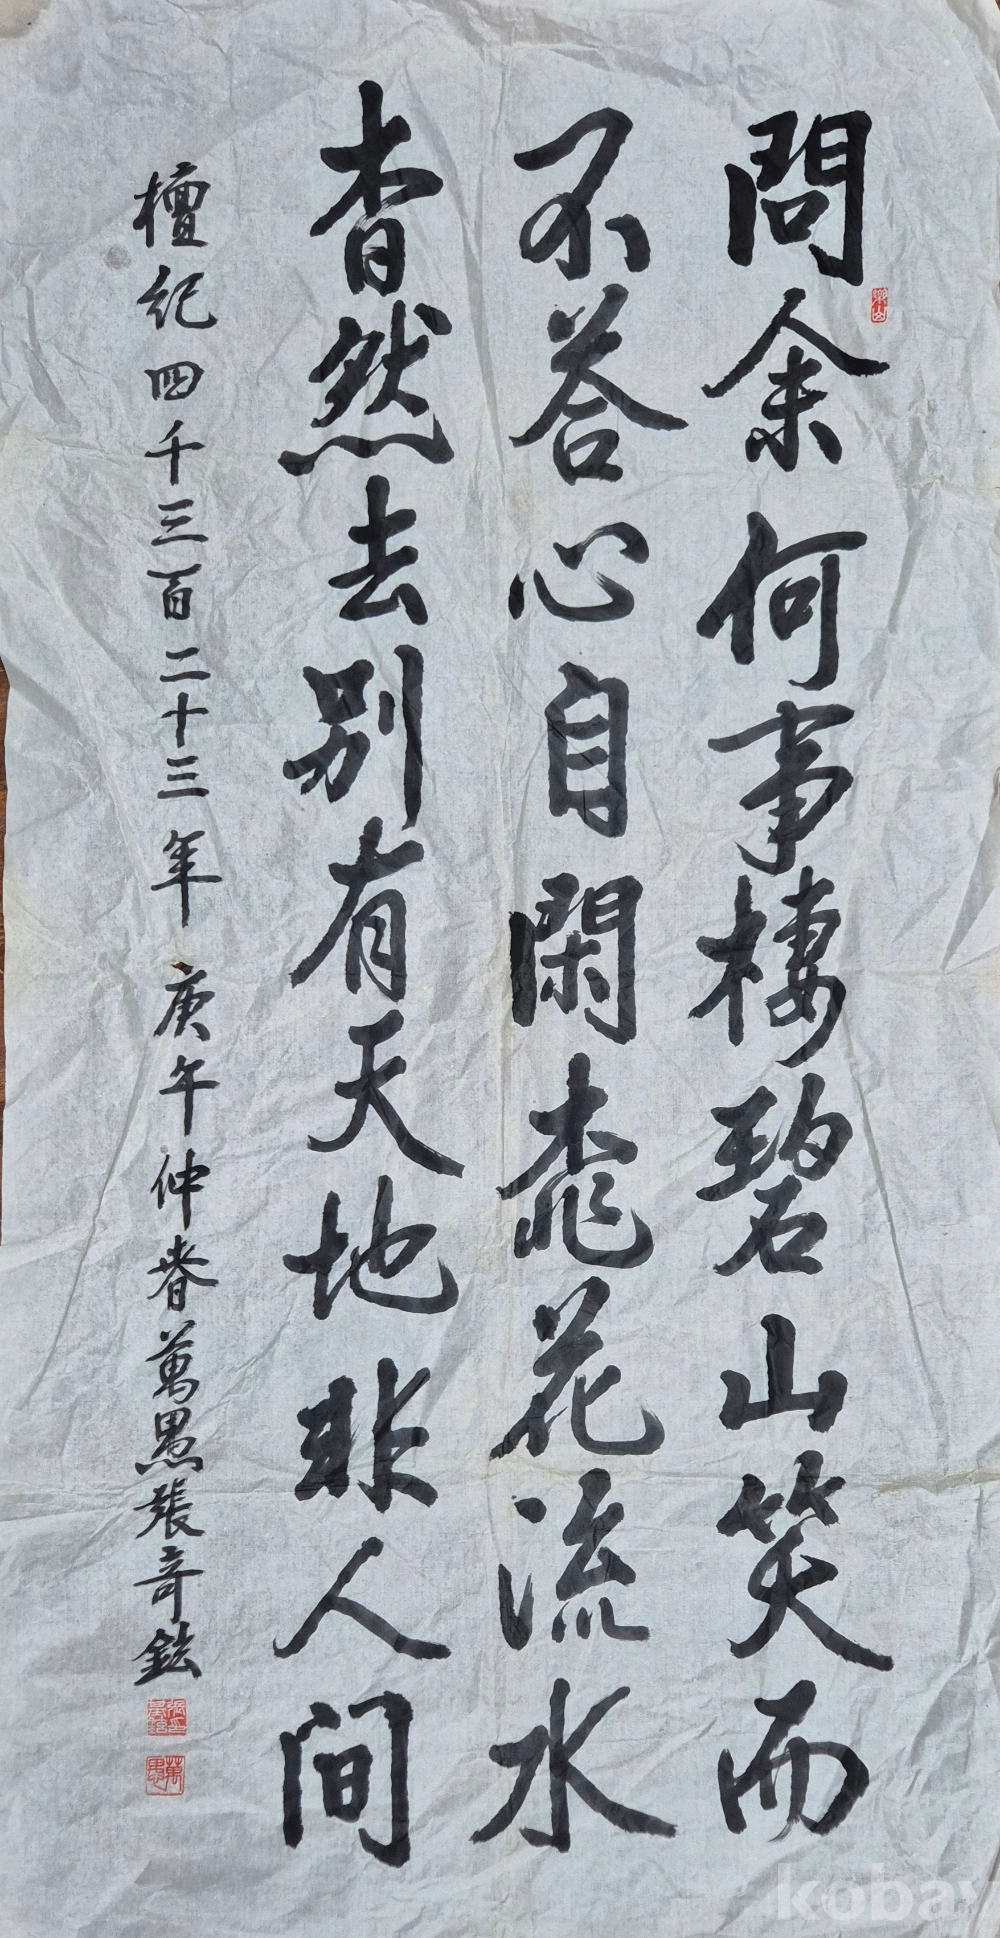 問余何事棲碧山笑而
不答心自閑桃花流水
杳然去別有天地非人間
檀紀四千三百二十三年 庚午仲春 萬愚 張奇鉉
萬愚
kobay